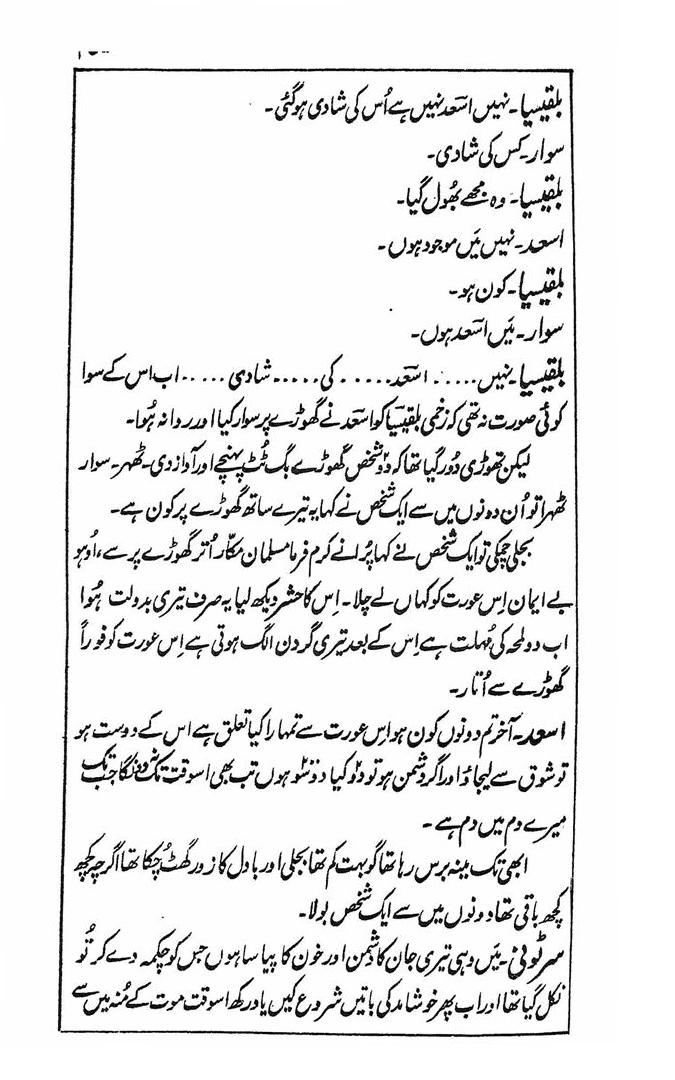 بلقیسیا۔ نہیں اسعد نہیں ہے اُس کی شادی ہو گئی۔
سوار۔ کس کی شادی۔
بلقیسیا۔ وہ مجھے بھُول گیا۔
اسعد۔ نہیں مَیں موجود ہوں۔
بلقیسیا۔ کون ہو۔
سوار۔ مَیں اسعد ہوں۔
بلقیسیا۔ نہیں ..... اسعد ..... کی ..... شادی ..... اب اس کے سوا
کوئی صورت نہ تھی کہ زخمی بلقیسیا کو اسعد نے گھوڑے پر سوار کیا اور روانہ ہُوا۔
لیکن تھوڑی دُور گیا تھا کہ دو شخص گھوڑے بگ ٹٹ پہنچے اور آواز دی۔ ٹھہر۔ سوار
ٹھہرا تو اُن دونوں میں سے ایک شخص نے کہا یہ تیرے ساتھ گھوڑے پر کون ہے۔
بجلی چمکی تو ایک شخص نے کہا پُرانے کرم فرما مسلمان مکّار اُتر گھوڑے پر سے، اُوہو
بے ایمان اِس عورت کو کہاں لے چلا۔ اِس کا حشر دیکھ لیا یہ صرف تیری بدولت ہُوا
اب دو لمحہ کی مُہلت ہے اِس کے بعد تیری گردن الگ ہوتی ہے اِس عورت کو فوراً
گھوڑے سے اُتار۔
اسعد۔ آخر تم دونوں کون ہو اِس عورت سے تمہارا کیا تعلق ہے اس کے دوست ہو
تو شوق سے لیجاؤ اور اگر دشمن ہو تو دو کیا دو سَو ہوں تب بھی اسوقت تک نہ دونگا جب تک
میرے دم میں دم ہے۔
ابھی تک مینہ برس رہا تھا گو بہت کم تھا بجلی اور بادل کا زور گھٹ چُکا تھا اگرچہ کچھ
کچھ باقی تھا دونوں میں سے ایک شخص بولا۔
سرٹونی۔ مَیں وہی تیری جان کا دشمن اور خون کا پیاسا ہوں جس کو چکمہ دے کر تُو
نکل گیا تھا اور اب پھر خوشامد کی باتیں شروع کیں یاد رکھ اسوقت موت کے مُنہ میں سے